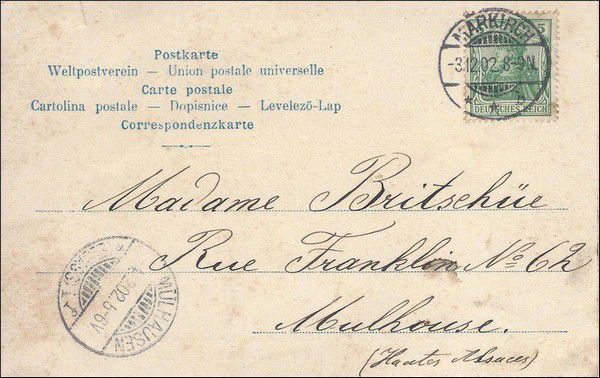 Postkarte
Weltpostverein – Union postale universelle
Carte postale
Cartolina postale – Dopisnice – Levelező-Lap
Correspondenzkarte
MARKIRCH
-3.12.02.8-9N
DEUTSCHES REICH
Madame Britschüe
Rue Franklin No 62
Mulhouse.
(Hautes Alsaces)
MÜLHAUSEN